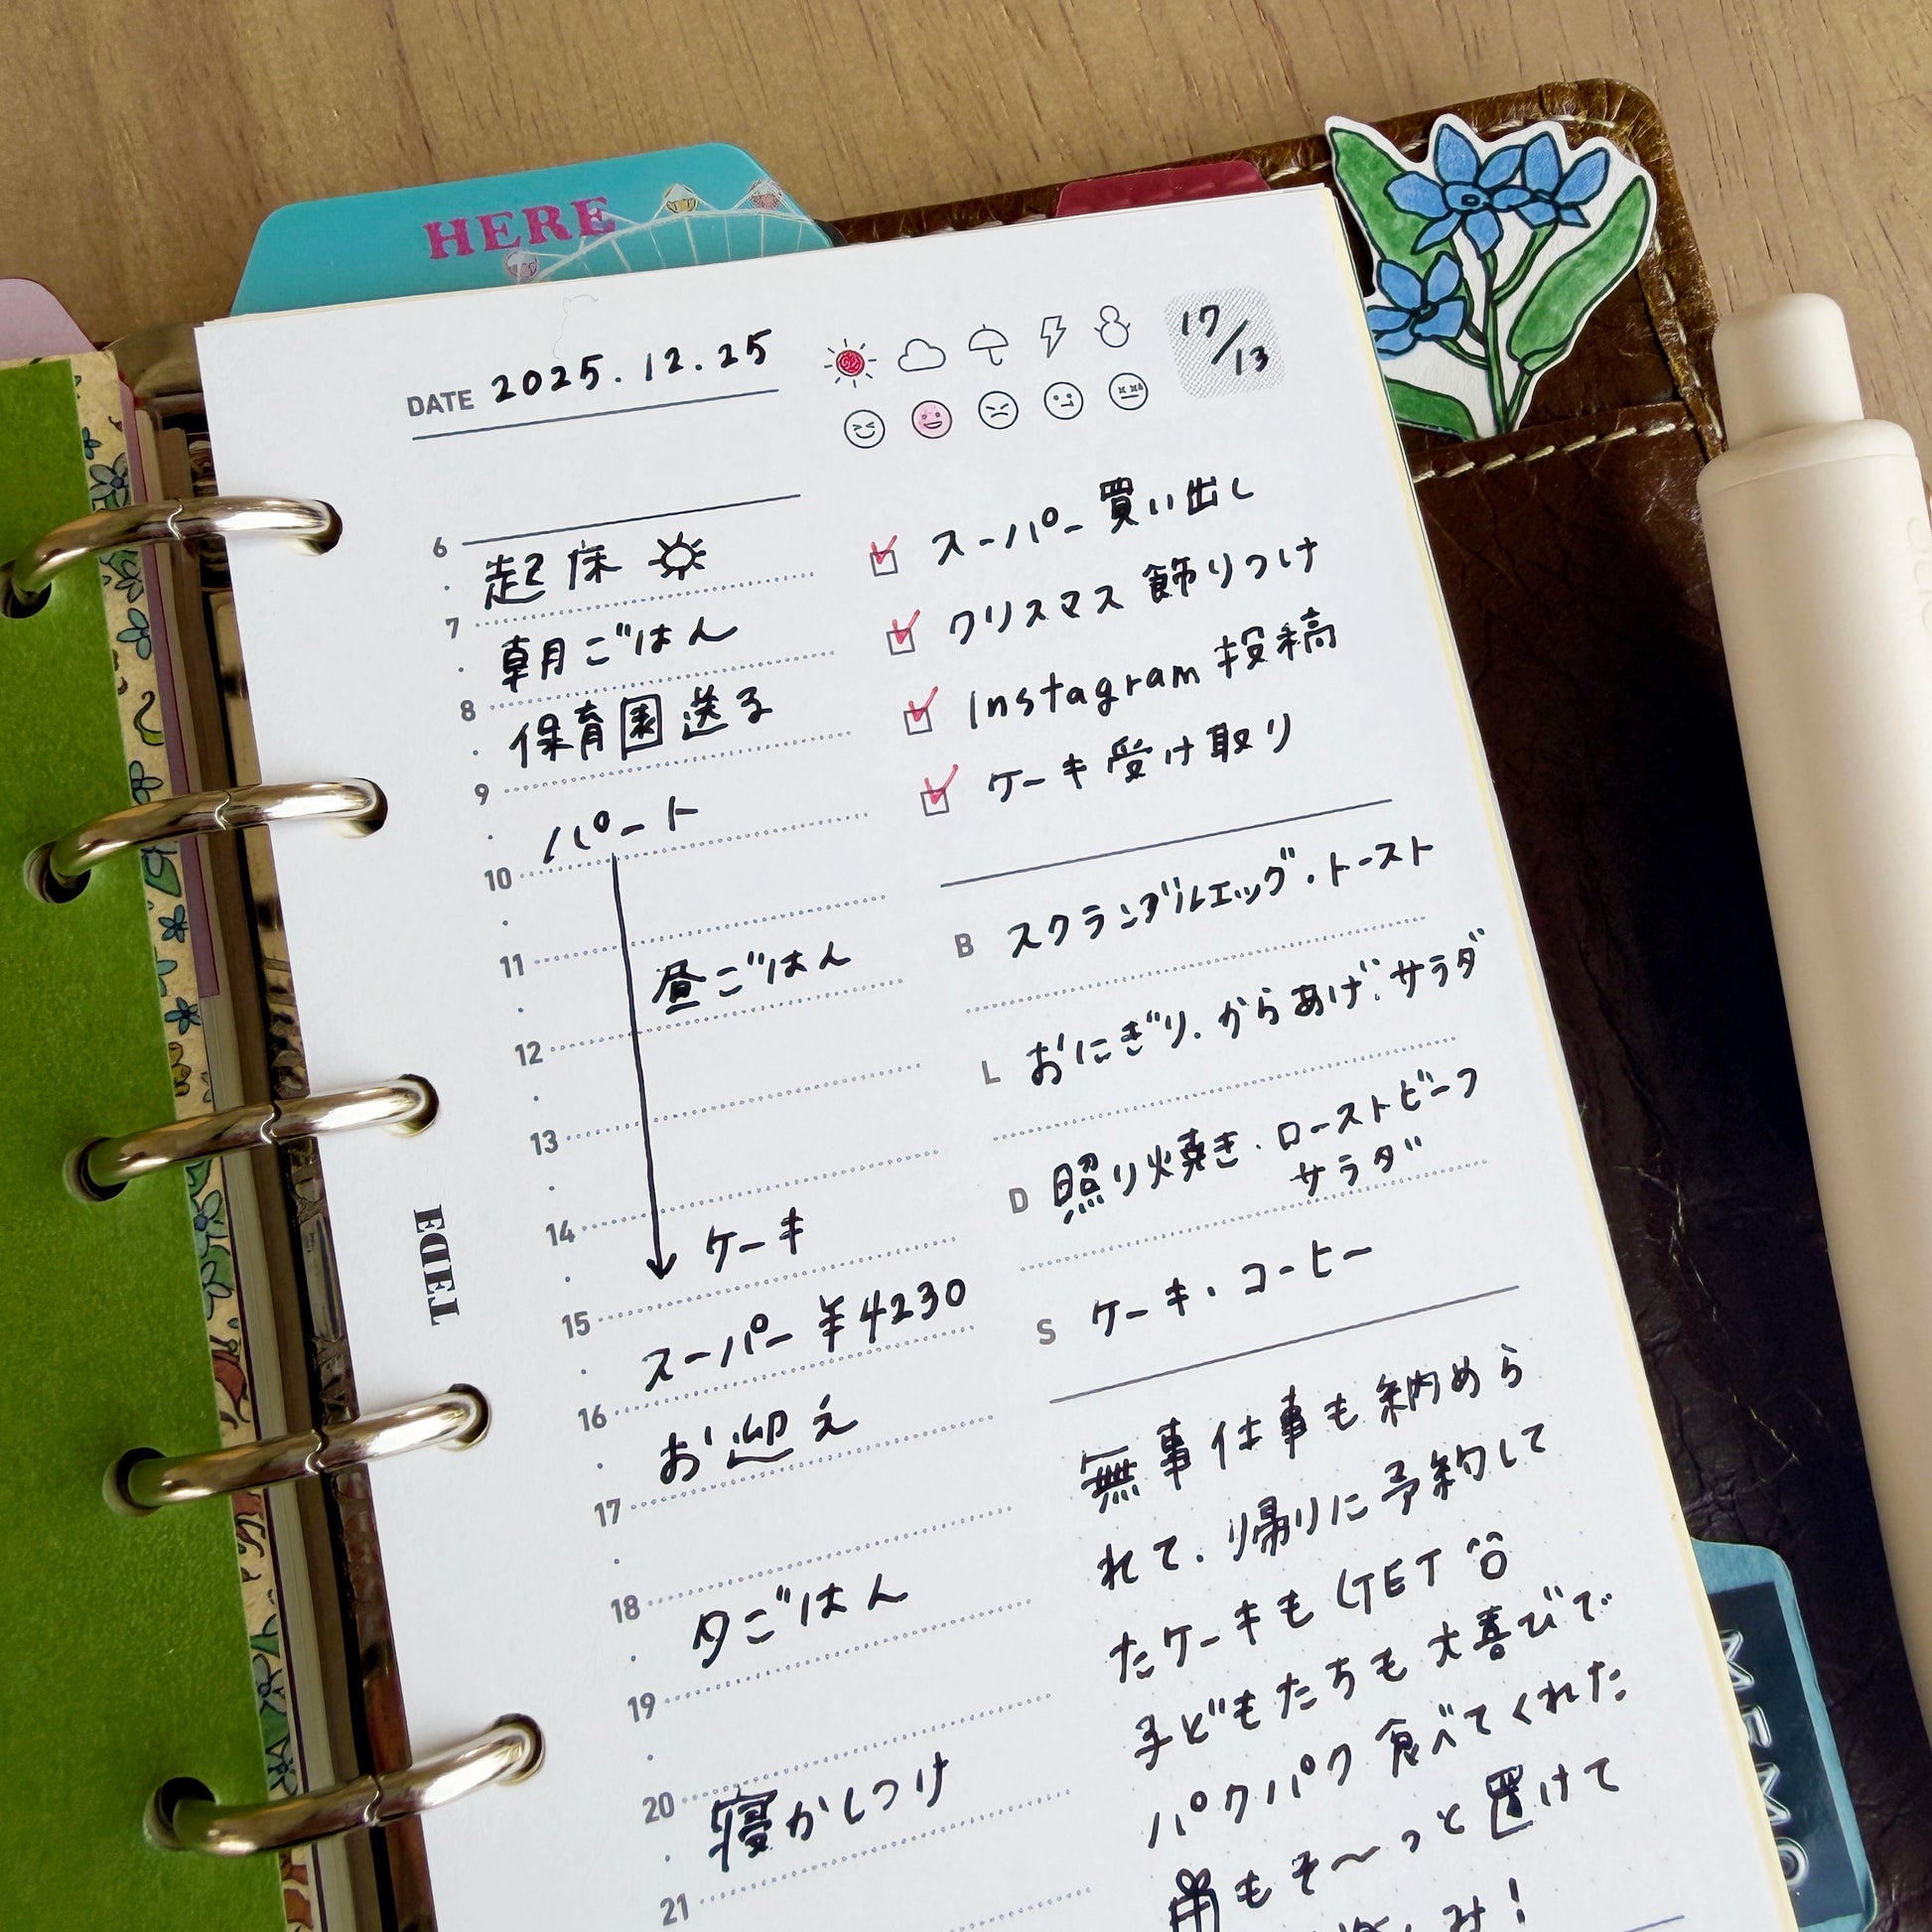 HERE
DATE 2025.12.25
17/13
6
起床
7
朝ごはん
8
保育園送る
9
パート
10
11
昼ごはん
12
13
14
ケーキ
15
スーパー ¥4230
16
お迎え
17
18
夕ごはん
19
20
寝かしつけ
21
スーパー買い出し
クリスマス飾りつけ
Instagram投稿
ケーキ受け取り
B スクランブルエッグ・トースト
L おにぎり・からあげ・サラダ
D 照り焼き・ローストビーフ
サラダ
S ケーキ・コーヒー
無事仕事も納めら
れて、帰りに予約して
たケーキもGET
子どもたちも大喜びで
パクパク食べてくれた
もそ〜っと置けて
み!
EDET
MEMO